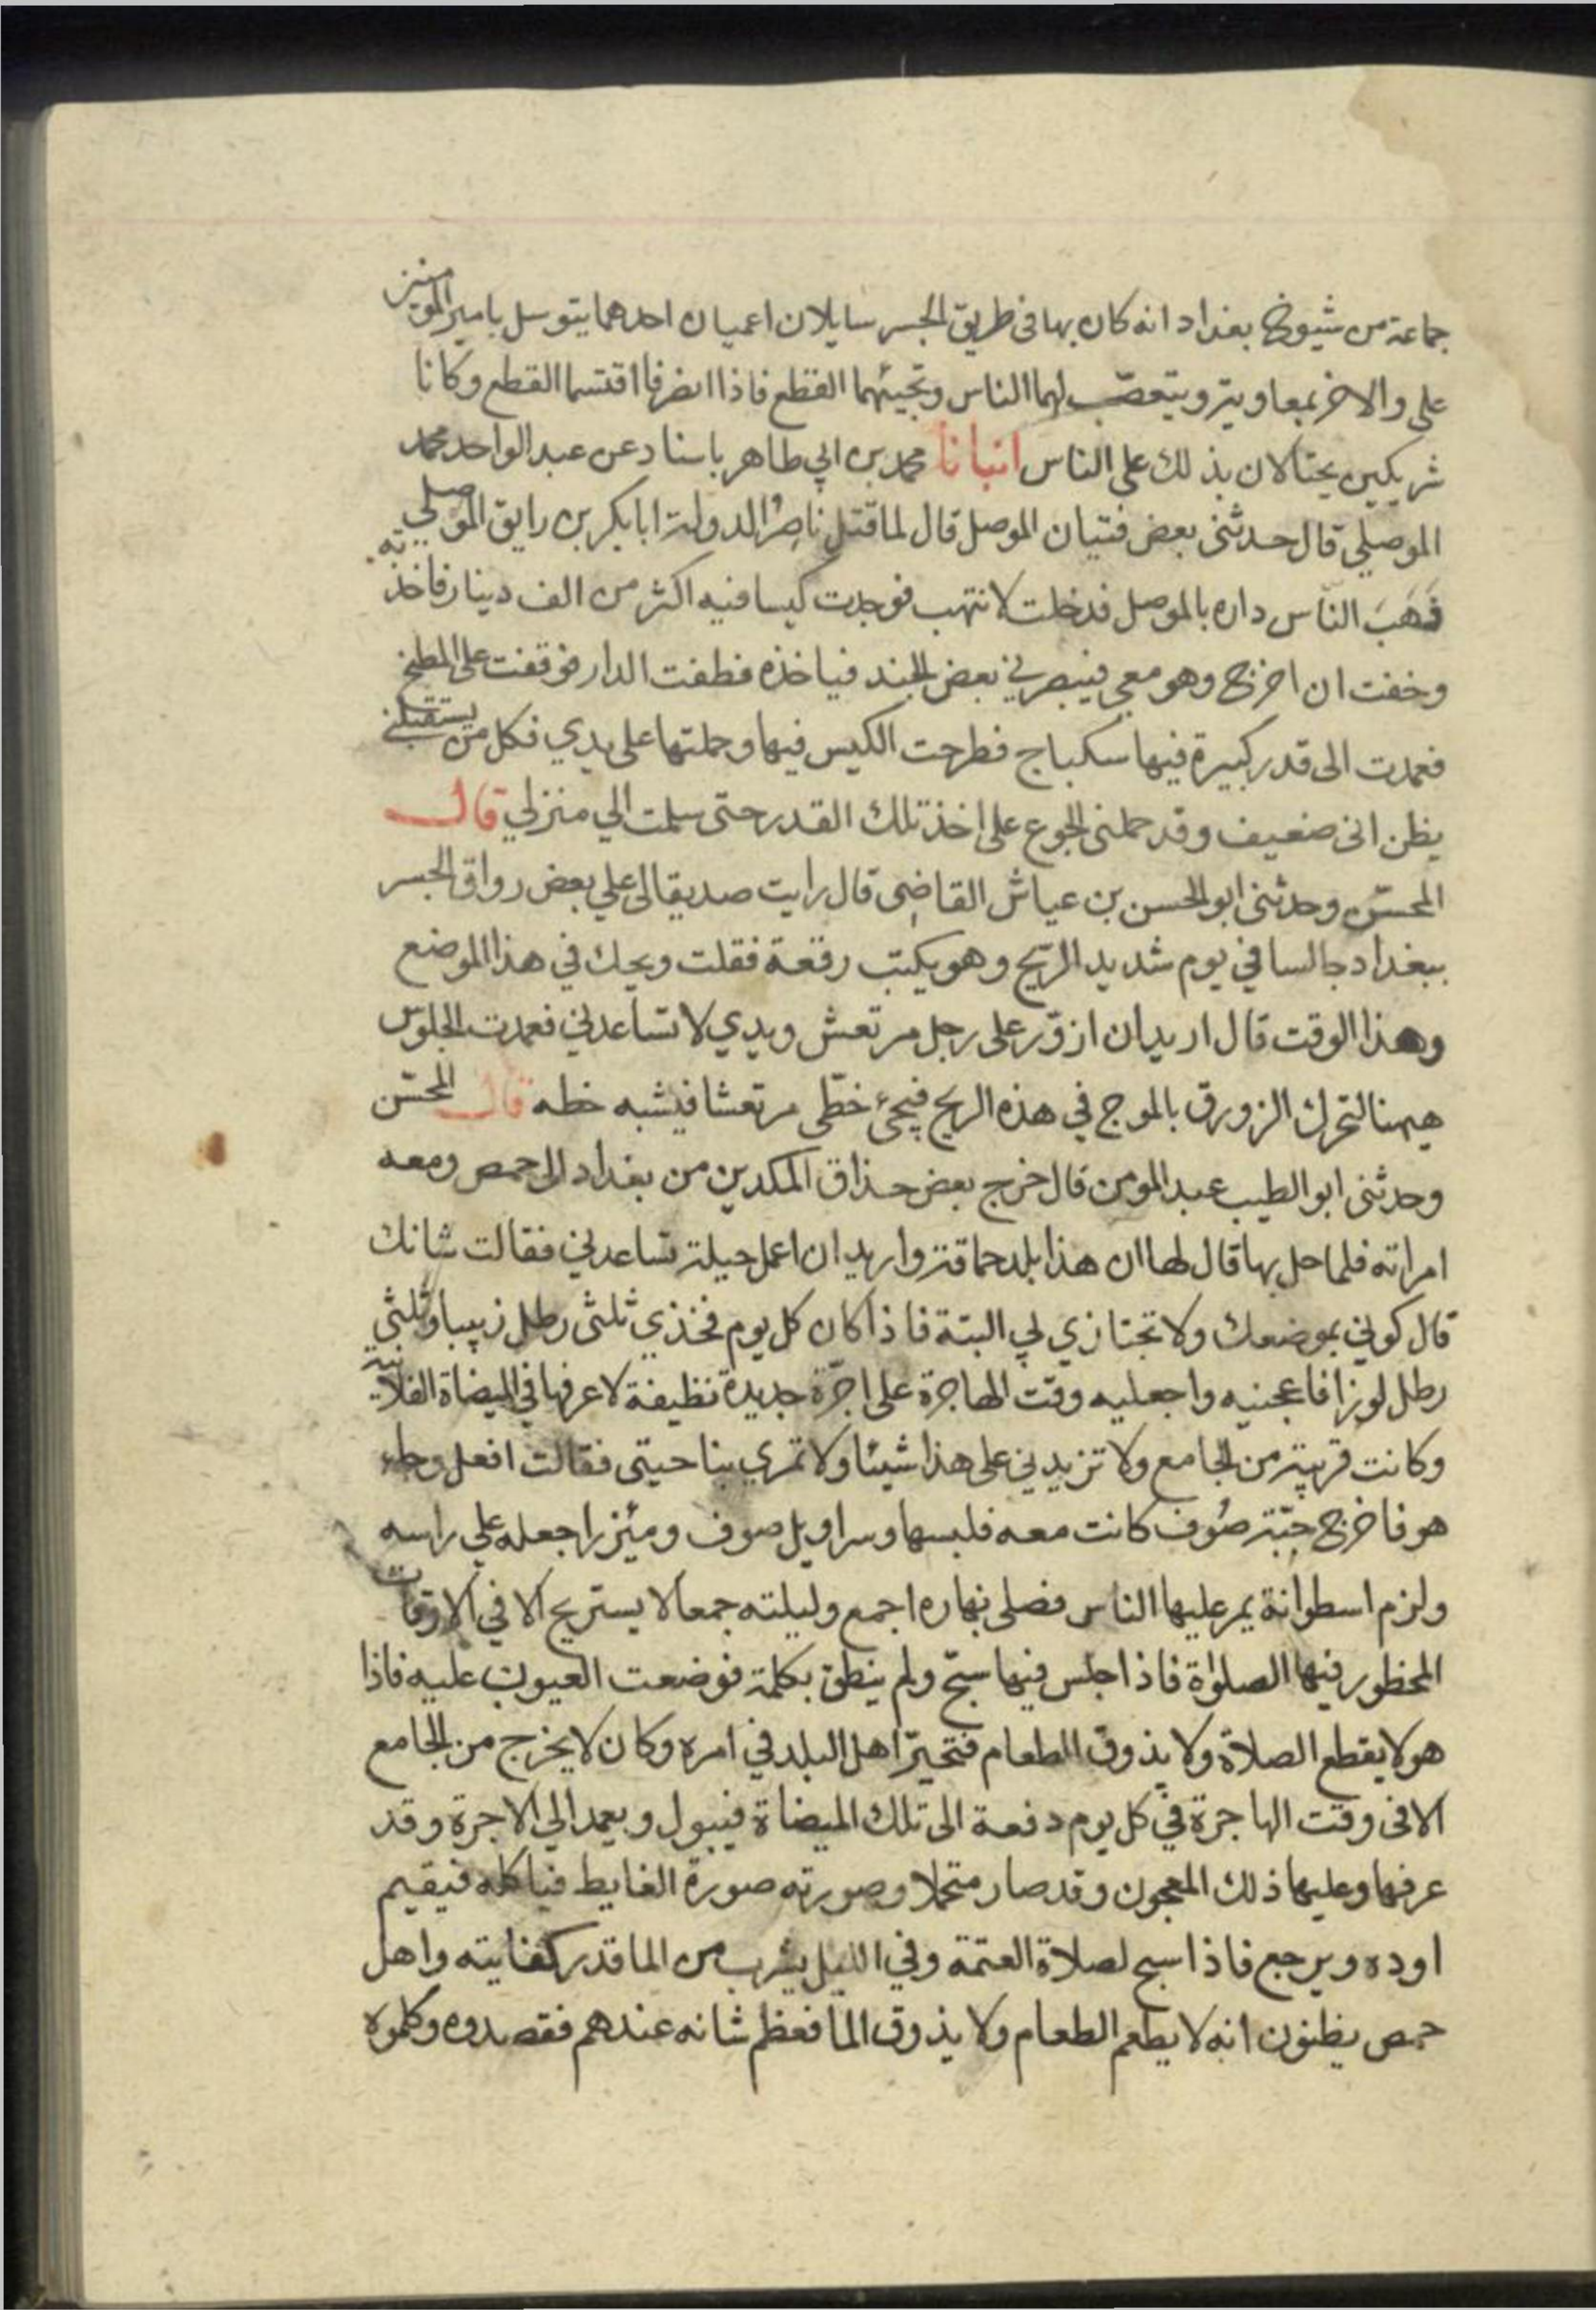 جماعة من شيوخ بغداد انه كان بها في طريق الجسر سايلان اعميان احدهما يتوسل بامير المومنين
على والاخر بمعاوية ويتعصب لهما الناس وتجيئهما القطع فاذا انصرفا اقتسما القطع وكانا
شريكين يحتالان بذلك على الناس انبانا محمد بن ابي طاهر باسناد عن عبد الواحد محمد
الموصلي قال حدثني بعض فتيان الموصل قال لما قتل ناصر الدولة ابا بكر بن رايق الموصلي
نهب الناس داره بالموصل فدخلت لانتهب فوجدت كيسا فيه اكثر من الف دينار فاخذته
وخفت ان اخرج وهو معي فيبصرني بعض الجند فياخذه فطفت الدار فوقفت على المطبخ
فعمدت الى قدر كبيرة فيها سكباج فطرحت الكيس فيها وحملتها على يدي فكل من يستقبلني
يظن انى ضعيف وقد حملني الجوع على اخذ تلك القدر حتى سلمت الي منزلي قال
المحسن وحدثني ابو الحسن بن عياش القاضي قال رايت صديقا لى علي بعض رواق الجسر
ببغداد جالسا في يوم شديد الريح وهو يكتب رقعة فقلت ويحك في هذا الموضع
وهذا الوقت قال اريد ان ازور على رجل مرتعش ويدي لا تساعدني فعمدت الجلوس
هيهنا لتحرك الزورق بالموج في هذه الريح فيجئ خطي مرتعشا فيشبه خطه قال المحسن
وحدثني ابو الطيب عبد المومن قال خرج بعض حذاق المكدين من بغداد الى حمص ومعه
امراته فلما حل بها قال لها ان هذا بلد حماقة واريد ان اعمل حيلة تساعدني فقالت شانك
قال كوني بموضعك ولا تجتازي لي البتة فاذا كان كل يوم فخذي ثلثى رطل زبيبا وثلثي
رطل لوزا فاعجنيه واجعليه وقت الهاجرة على اجرة جديدة نظيفة لاعرفها في الميضاة الفلانية
وكانت قريبة من الجامع ولا تزيديني على هذا شيئا ولا تمري بناحيتى فقالت افعل وجاء
هو فاخرج جبة صوف كانت معه فلبسها وسراويل صوف ومئزرا جعله علي راسه
ولزم اسطوانة يمر عليها الناس فصلى نهاره اجمع وليلته جمعا لا يستريح الا في الاوقات
المحظور فيها الصلواة فاذا جلس فيها سبح ولم ينطق بكلمة فوضعت العيون عليه فاذا
هو لا يقطع الصلاة ولا يذوق الطعام فتحير اهل البلد في امره وكان لا يخرج من الجامع
الا في وقت الهاجرة في كل يوم دفعة الى تلك الميضاة فيبول ويعمد الي الاجرة وقد
عرفها وعليها ذلك المعجون وقد صار متحملا وصورته صورة الغايط فياكله فيقيم
اوده ويرجع فاذا اسبح لصلاة العتمة وفي الليل يشرب من الما قدر كفايته واهل
حمص يظنون انه لا يطعم الطعام ولا يذوق الما فعظم شانه عندهم فقصدوه وكلموه